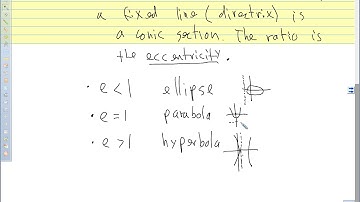 a fixed line (directrix) is
a conic section. The ratio is
the eccentricity.
· e < 1 ellipse
· e = 1 parabola
· e > 1 hyperbola